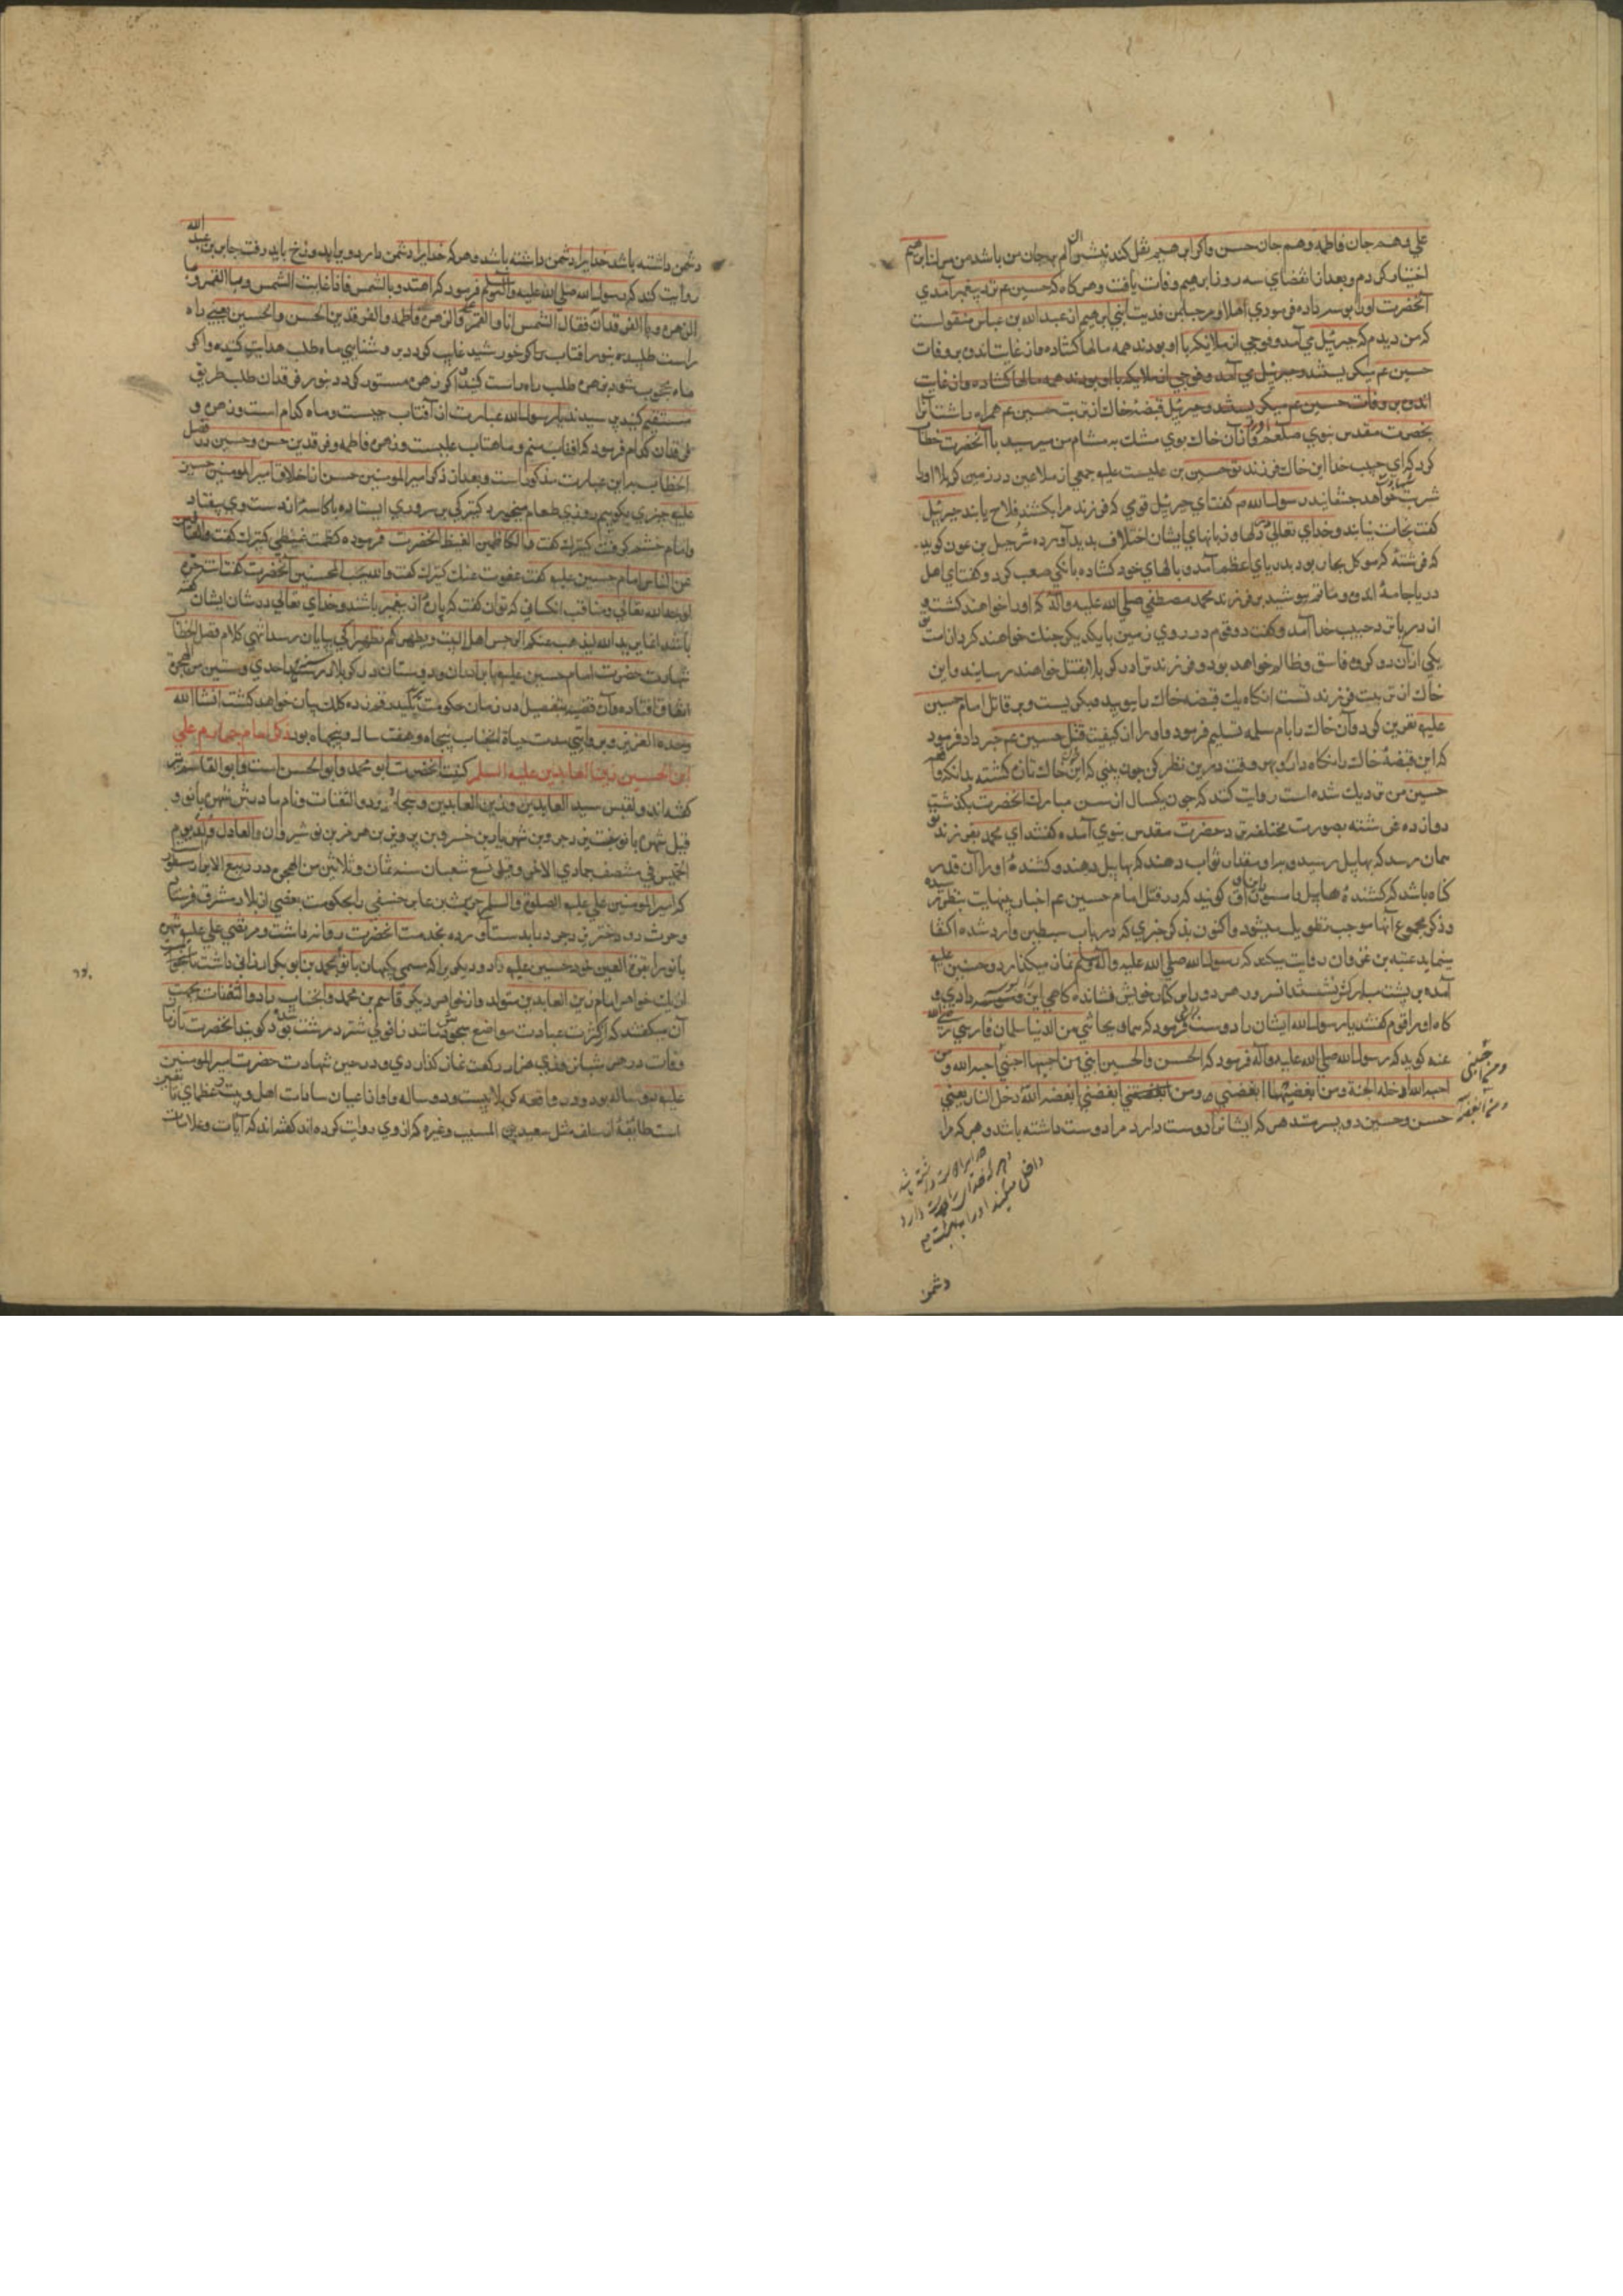 علي وهم جان فاطمه وهم جان حسن واكر ابرهيم نقل كند بيشترين الم بجان من باشد من مرك ابرهيم
اختيار كردم وبعد از انقضاي سه روز ابرهيم وفات يافت وهركاه كه حسين عم نزد پيغمبر آمدي
آنحضرت اورا بوسه داده فرمودي اهلا ومرحبا بمن فديته بابني ابرهيم از عبدالله بن عباس منقولست
كه من ديدم كه جبرئيل مي آمد وفوجي از ملايكه با او بودند همه بالها كشاده واز غايت اندوه بر وفات
حسين عم ميكريستند وجبرئيل مي آمد وفوجي از ملايكه با او بودند همه بالها كشاده واز غايت
اندوه بر وفات حسين عم ميكريستند وجبرئيل قبضه خاك از تربت حسين عم همراه داشت آنرا
بحضرت مقدس نبوي صلعم آورد وازآن خاك بوي مشك به مشام من ميرسيد با آنحضرت خطاب
كرد كه اي حبيب خدا اين خاك فرزند تو حسين بن عليست عليه جمعي از ملاعين در زمين كربلا اورا
شربت شهادت خواهند چشانيد رسول الله م كفت اي جبرئيل قومي كه فرزند مرا بكشند فلاح يابند جبرئيل
كفت نجات نيابند وخداي تعالي دلها وزبانهاي ايشان اختلاف بديد آورد شرجيل بن عون كويد
كه فرشتهٔ كه موكل بحار بود بدرياي اعظم آمد وبالهاي خود كشاده بانكي صعب كرد وكفت اي اهل
دريا جامهٔ اندوه وماتم بپوشيد بر فرزند محمد مصطفي صلي الله عليه وآله كه اورا خواهند كشت و
از دريا نزد حبيب خدا آمد وكفت دو قوم در روي زمين با يكديكر جنك خواهند كرد از امت تو
يكي ازآن دو كروه فاسق وظالم خواهد بود وفرزند ترا در كربلا بقتل خواهند رسانيد واين
خاك از تربت فرزند تست انكاه يك قبضه خاك را بوييد وميكريست وبر قاتل امام حسين
عليه نفرين كرد وآن خاك را بام سلمه تسليم فرمود واورا از كيفيت قتل حسين عم خبر داد فرمود
كه اين قبضهٔ خاك را نكاه دار وهر وقت درين نظر كن چون بيني كه اين خاك تازه كشته بدانكه وقت قتل
حسين من نزديك شده است روايت كند كه چون يكسال از سن مبارك آنحضرت بكذشت
دوازده فرشته بصورت مختلف نزد حضرت مقدس نبوي آمده كفتند اي محمد بفرزند تو
همان رسد كه بهابيل رسيد واورا مقدار ثواب دهند كه بهابيل دهند وكشنده اورا آن قدر
كناه باشد كه كشنده هابيل را سوق اوراق كويند كه در قتل امام حسين عم اخبار بي نهايت بنظر رسيده
وذكر مجموع آنها موجب تطويل ميشود واكنون بذكر خبري كه در باب سبطين وارد شده اكتفا
مينمايد عتبه بن غزوان روايت ميكند كه رسول الله صلي الله عليه وآله وسلم نماز ميكذارد وحسنين عليه
آمده بر پشت مباركش نشستند آنسرور هر دو را بر كنار خويش نشانده كاهي اين را بوسه دادي و
كاه اورا قوم كفتند يا رسول الله ايشان را دوست داري فرمود كه هما ريحانتي من الدنيا سلمان فارسي رضي الله
عنه كويد كه رسول الله صلي الله عليه وآله فرمود كه الحسن والحسين ابني من احبهما احبني احبه الله ومن
احبه الله ادخله الجنة ومن ابغضهما ابغضني ومن ابغضني ابغضه الله دخل النار يعني
حسن وحسين دو پسر منند هر كه ايشانرا دوست دارد مرا دوست داشته باشد وهر كه مرا
ومن احبني
ومن ابغضه
دوست داشته باشد
وهر كه خدايرا دوست دارد
داخل ميكند اورا به بهشت
دشمن
دشمن داشته باشد خدايرا دشمن داشته باشد وهر كه خدايرا دشمن دارد ويرا بدوزخ بايد رفت جابر بن عبد الله
روايت كند كه رسول الله صلي الله عليه وآله وسلم فرمود كه اهتدوا بالشمس فاذا غابت الشمس وبالقمر و
الزهره وبالفرقدان فقال الشمس انا والقمر علي والزهره فاطمه والفرقدين الحسن والحسين يعني راه
راست طلبيد بنور آفتاب واكر خورشيد غايب كردد بروشنايي ماه طلب هدايت كنيد واكر
ماه محجوب شود بزهره طلب راه راست كنيد واكر زهره مستور كردد بنور فرقدان طلب طريق
مستقيم كنيد پرسيدند يا رسول الله عبارت از آفتاب چيست وماه كدام است وزهره و
فرقدان كدام فرمود كه آفتاب منم وماهتاب عليست وزهره فاطمه وفرقدين حسن وحسين در فصل
الخطاب بر اين عبارت مذكور است وبعد از ذكر امير المومنين حسن از اخلاق امير المومنين حسين
عليه چيزي بكوييم روزي طعام ميخورد كنيزكي بر سر وي ايستاده با كاسهٔ از دست وي بيفتاد
وامام خشم كرفت كنيزك كفت والكاظمين الغيظ آنحضرت فرمود كظمت غيظي كنيزك كفت والعافين
عن الناس امام حسين عليه كفت عفوت عنك كنيزك كفت والله يحب المحسنين آنحضرت كفت انت حرة
لوجه الله تعالي ومناقب انكساني كه توان كفت كه پاره از پيغمبر باشند وخداي تعالي در شان ايشان كفته
باشد انما يريد الله ليذهب عنكم الرجس اهل البيت ويطهركم تطهيرا كي بپايان رسد انتهي كلام فصل الخطاب
شهادت حضرت امام حسين عليه با برادران ودوستان در كربلا در سنه احدي وستين من الهجرة
اتفاق افتاده وآن قضيه بتفصيل در زمان حكومت يزيد رقم زده كلك بيان خواهد كشت انشا الله
وحده العزيز وبروايتي مدت حياة آنجناب پنجاه وهفت سال وپنجماه بود ذكر امام چهارم علي
ابن الحسين زين العابدين عليه السلم كنيت آنحضرت ابو محمد وابو الحسن است وابو القاسم نيز
كفته اند ولقبش سيد العابدين وزين العابدين وسجاد وذو الثفنات ونام مادرش شهربانو و
قيل شهربانو بنت يزدجرد بن شهريار بن خسرو بن پرويز بن هرمز بن نوشيروان العادل ولد يوم
الخميس في منتصف جمادي الاخر وقيل تسع شعبان سنه ثمان وثلاثين من الهجره در ربيع الابرار مسطور
كه امير المومنين علي عليه الصلوة والسلم حريث بن جابر حنفي را بحكومت بعضي از بلاد مشرق فرستاد
وحريث دو دختر يزدجرد بدست آورده بخدمت آنحضرت روانه داشت ومرتضي علي عليه شهر
بانو را بقرة العين خود حسين عليه داد وديكري را كه مسمي بكيهان بانو بمحمد بن ابو بكر ارزاني داشت
از يك خواهر امام زين العابدين متولد واز خواهر ديكر قاسم بن محمد وآنجناب را ذو الثفنات بجهت
آن ميكفتند كه از كثرت عبادت مواضع سجودش مانند زانوي شتر درشت شده بود كويند آنحضرت تا زمان
وفات در هر شبانروزي هزار ركعت نماز كذاردي ودر حين شهادت حضرت امير المومنين
عليه دو ساله بود ودر واقعه كربلا بيست ودو ساله واو از اعيان سادات اهل بيت وعظماي تابعين
است طايفهٔ از سلف مثل سعيد بن المسيب وغيره كه از وي روايت كرده اند كفته اند كه آيات وعلامات